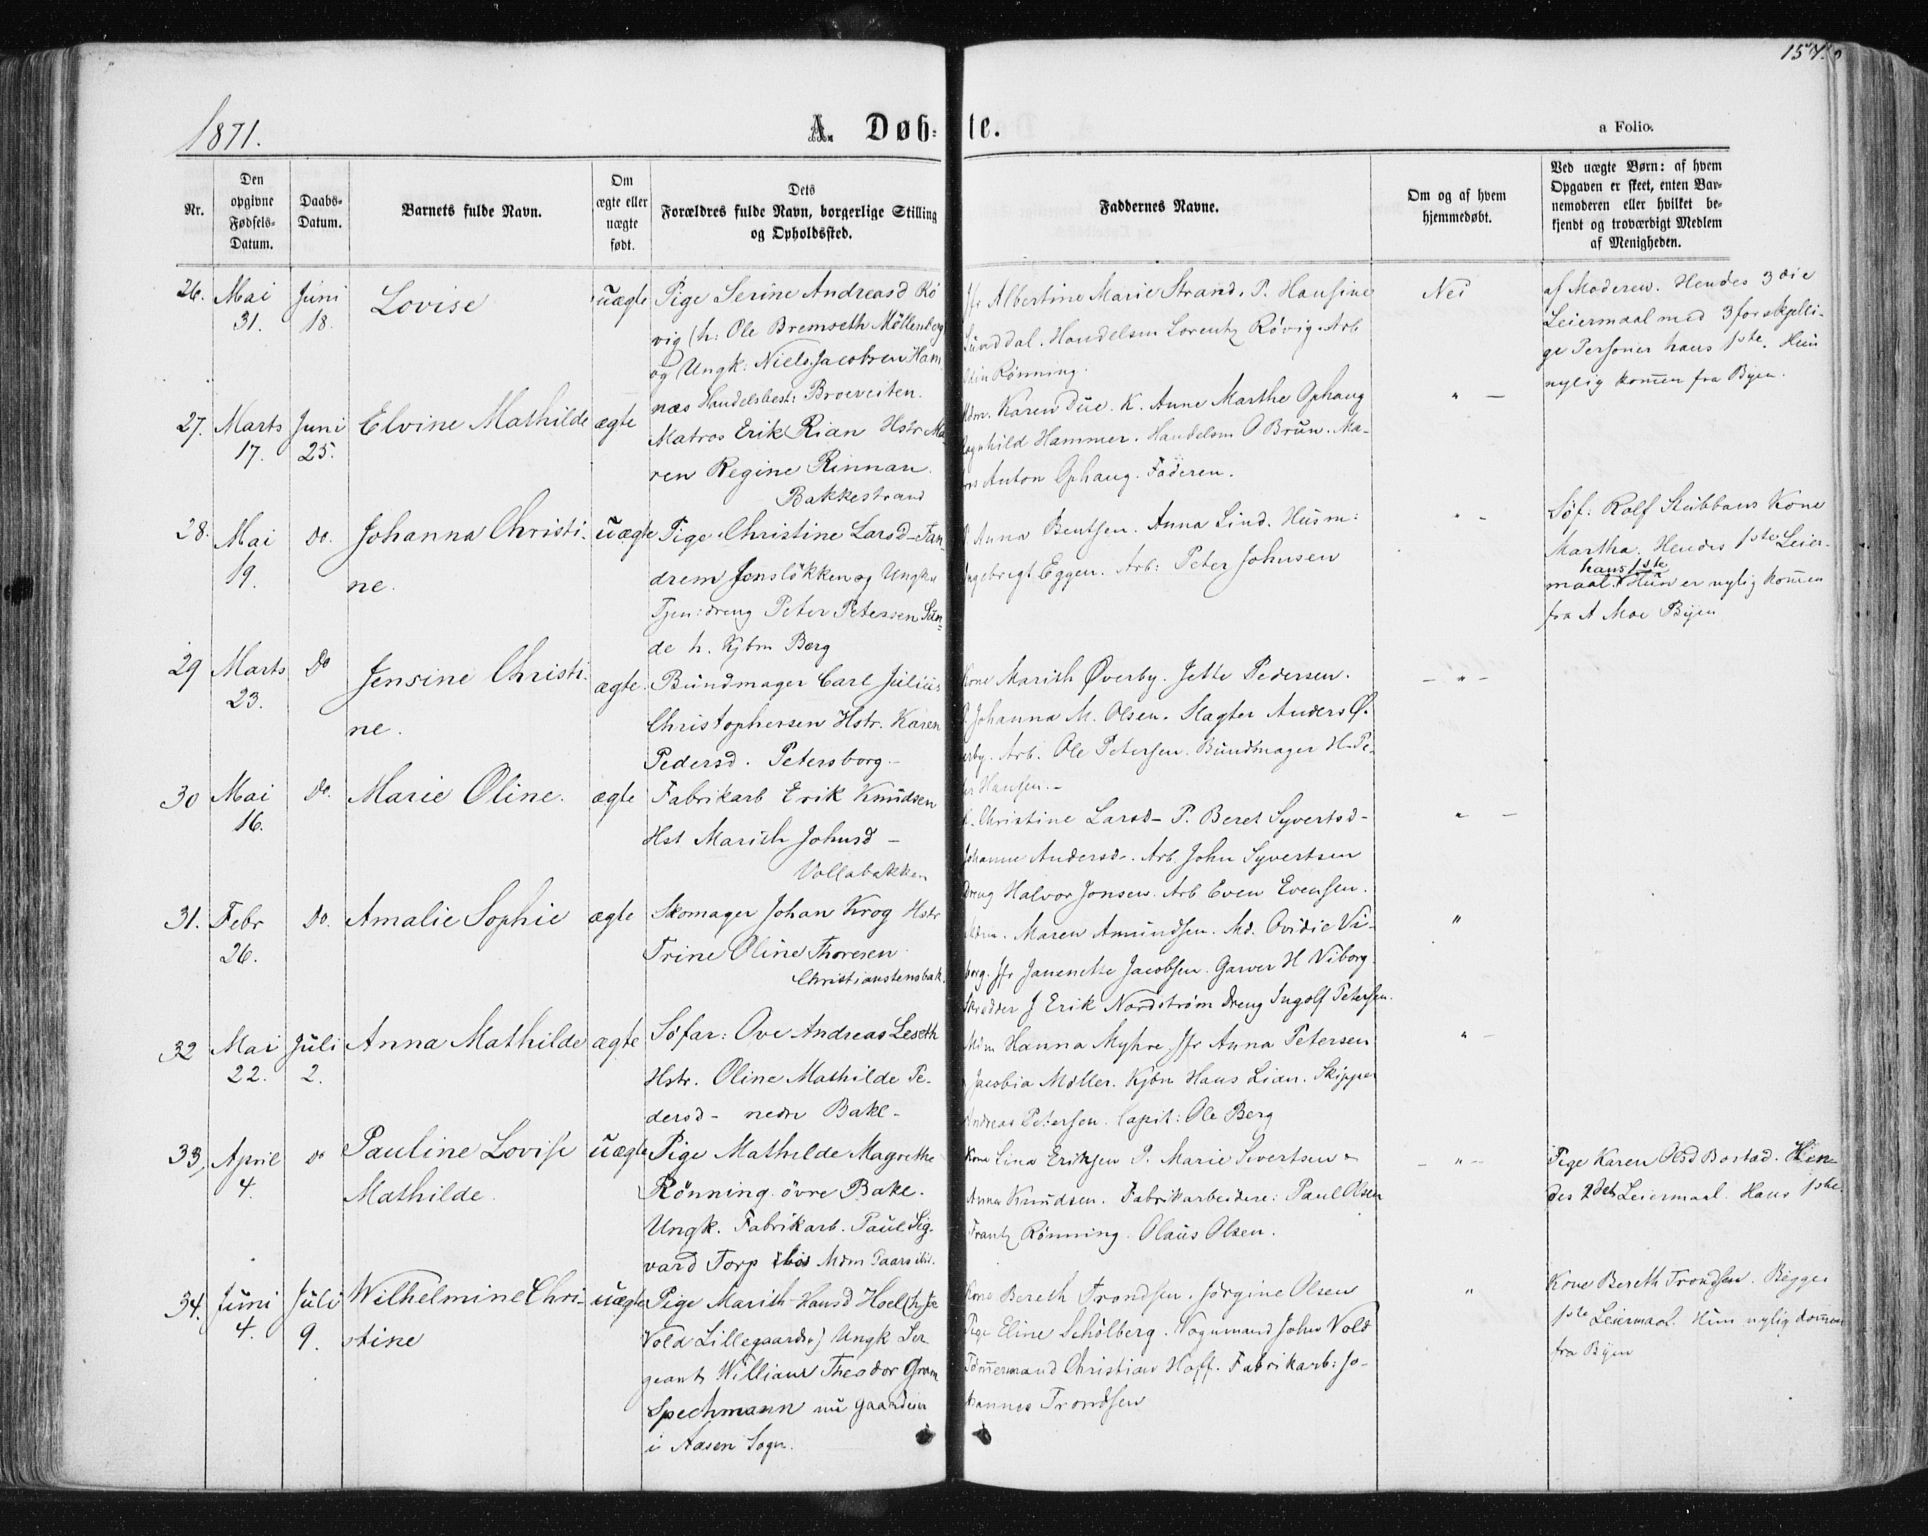 157.
1871.
A. Døb-te.
a Folio.
Nr.
Den opgivne Fødsels-Datum.
Daabs-Datum.
Barnets fulde Navn.
Om ægte eller uægte født.
Dets Forældres fulde Navn, borgerlige Stilling og Opholdssted.
Faddernes Navne.
Om og af hvem hjemmedøbt.
Ved uægte Børn: af hvem Opgaven er skeet, enten Barnemoderen eller hvilket bekjendt og troværdigt Medlem af Menigheden.
26. Mai 31. Juni 18. Lovise uægte
Pige Serine Andreasd Rö
vig (h: Ole Bremseth Möllenberg
og Ungk: Niels Jacobsen Ham
næs Handelsbest: Broeveiten.
Jfr Albertine Marie Strand. P. Hansine
Sunddal. Handelsm Lorentz Røvig. Arb
Rønning.
Nei
af Moderen. Hendes 3die
Leiermaal med 3 forskjelli-
ge Personer hans 1ste. Hun
nylig kommen fra Byen.
27. Marts 17. Juni 25. Elvine Mathilde ægte
Matros Erik Rian Hstr Ma-
ren Regine Rinnan.
Bakkestrand
Mdm. Karen Due. K. Anne Marthe Ophaug
Ragnhild Hammer. Handelsm O Brun. Ma-
tros Anton Ophaug. Faderen.
" -
28. Mai 19. do. Johanna Christi-
ne. uægte
Pige Christine Larsd-Tan-
drem Jensløkken og Ungkar
Tjen: dreng Peter Petersen Sun-
de h. Kjbm Berg
P. Anna Bentsen. Anna Lind. Husm:
Ingebrigt Eggen. Arb: Peter Johnsen
" -
Söf: Rolf Stubbans Kone
Martha. Hendes 1ste Leier-
hans 1ste
maal. Hun er nylig kommen
fra A Moe Byen
29 Marts 23. do Jensine Christi-
ne. ægte.
Bundmager Carl Julius
Christophersen Hstr. Karen
Pedersd. Petersborg-
Kone Marith Øverby. Jette Pedersen.
P. Johanna M. Olsen. Slagter Anders Ø-
verby. Arb. Ole Petersen. Bundmager H. Pe-
ter Hansen.-
- " -
30 Mai 16. do. Marie Oline. ægte
Fabrikarb Erik Knudsen
Hst Marith Johnsd -
Vollabakken
K. Christine Larsd- P. Beret Syvertsd-
Johanne Andersd-. Arb. John Syvertsen
Dreng Halvor Jonsen. Arb Even Evensen.
" -
31. Febr 26. do. Amalie Sophie ægte
Skomager Johan Krog Hstr
Trine Oline Thoresen
Christianstensbak.
Mdm. Maren Amundsen. Md. Ovidie Vi-
borg. Jfr Janenette Jacobsen. Garver H Viborg.
Skrædder J Erik Nordstrøm Dreng Ingolf Petersen.
"
32 Mai 22. Juli 2. Anna Mathilde ægte
Söfar: Ove Andreas Leseth
Hstr. Oline Mathilde Pe-
dersd- nedre Bakl-
Mdm Hanna Myhre. Jfr Anna Petersen
Jacobia Möller. Kjbm Hans Lian. Skipper
Andreas Petersen. Capit: Ole Berg
" -
33, April 4. do Pauline Lovise
Mathilde. uægte
Pige Mathilde Magrethe
Rönning. övre Bakl.
Ungk. Fabrikarb. Paul Sig-
vard Torp hos Mdm Paars
Kone Lina Eriksen P. Marie Sivertsen -
Anna Knudsen. Fabrikarbeidere: Paul Olsen
Frantz Rönning. Olaus Olsen.
- " -
Pige Karen Olsd Bostad. Hen-
des 2det Leiermaal. Hans 1ste.
34. Juni 4. Juli 9. Wilhelmine Chri-
stine uægte
Pige Marith Hansd Hoel (h:
Vold Lillegaarden) Ungk Ser-
geant William Theodor Gram
Spechmann nu gaardeier
i Aasen Sogn.
Kone Bereth Trondsen. Jørgine Olsen
Pige Eline Schölberg. Vognmand John Vold
Tömmermand Christian Hoff. Fabrikarb: Jo-
hannes Trondsen
"
Kone Bereth Trondsen. Begges
1ste Leiermaal. Hun nylig kommen
fra Byen